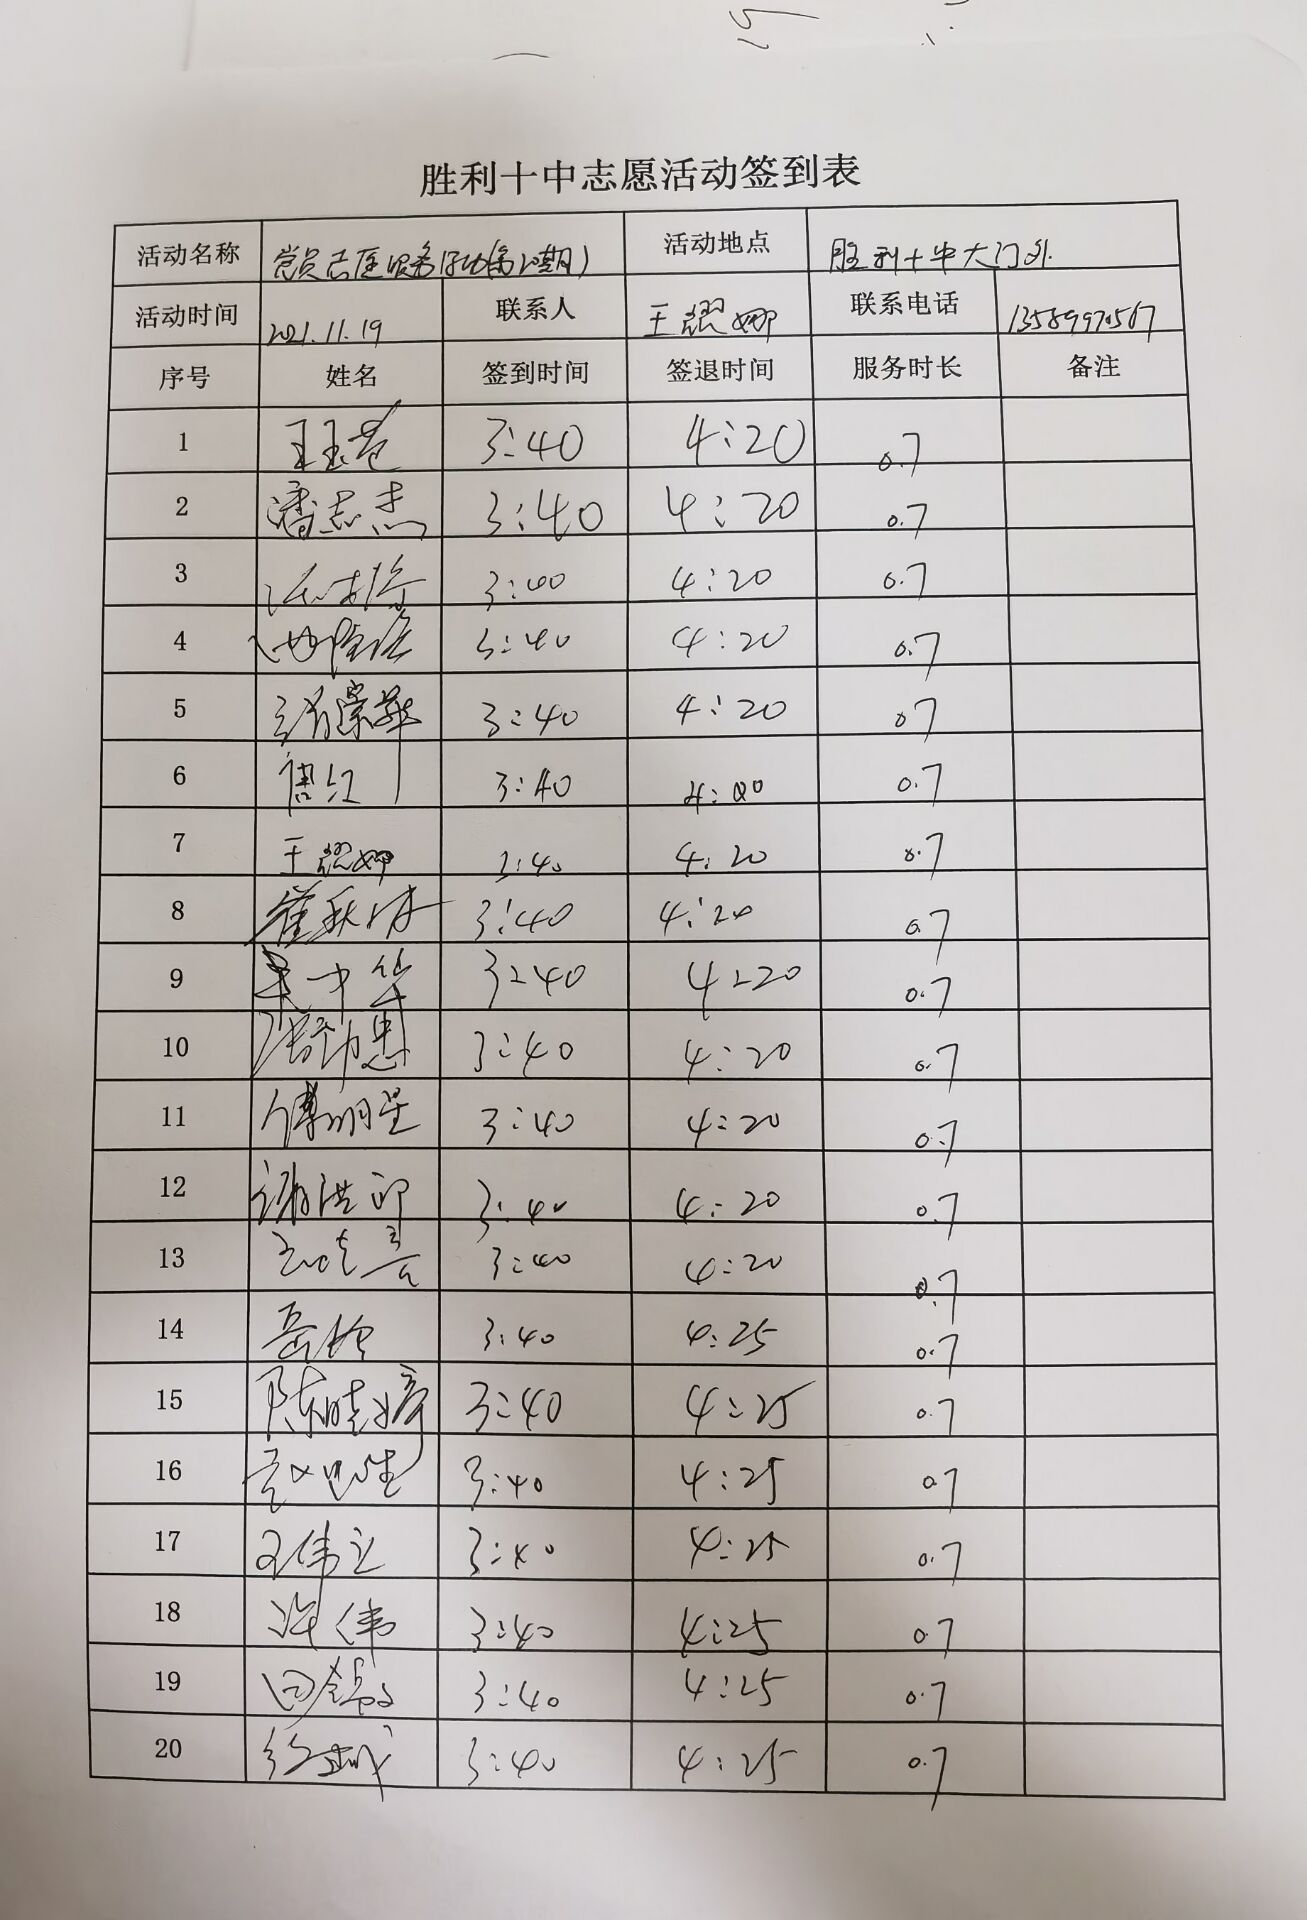 胜利十中志愿活动签到表
活动名称 党员志愿服务活动 活动地点 胜利十中大门外
活动时间 2021.11.19 联系人 王耀娜 联系电话
序号 姓名 签到时间 签退时间 服务时长 备注
1 3:40 4:20 0.7
2 潘志杰 3:40 4:20 0.7
3 3:40 4:20 0.7
4 3:40 4:20 0.7
5 3:40 4:20 0.7
6 唐红 3:40 4:20 0.7
7 王耀娜 3:40 4:20 0.7
8 3:40 4:20 0.7
9 3:40 4:20 0.7
10 3:40 4:20 0.7
11 傅明星 3:40 4:20 0.7
12 3:40 4:20 0.7
13 3:40 4:20 0.7
14 岳玲 3:40 4:25 0.7
15 陈晓婷 3:40 4:25 0.7
16 3:40 4:25 0.7
17 3:40 4:25 0.7
18 许伟 3:40 4:25 0.7
19 3:40 4:25 0.7
20 3:40 4:25 0.7